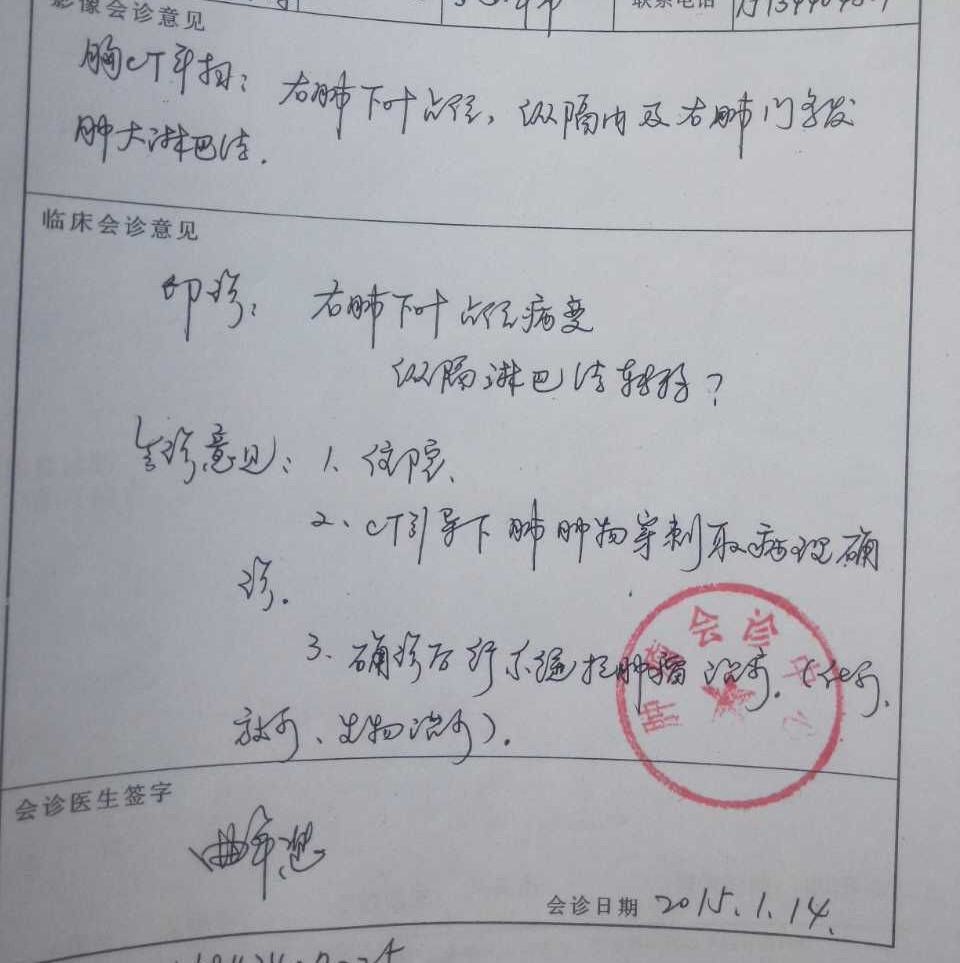 影像会诊意见
联系电话
胸CT平扫: 右肺下叶占位, 纵隔内及右肺门多发
肿大淋巴结.
临床会诊意见
印诊: 右肺下叶占位病变
纵隔淋巴结转移?
会诊意见: 1、住院、
2、CT引导下肺肿物穿刺取病理确
诊.
3. 确诊后行系统抗肿瘤治疗. (化疗、
放疗、生物治疗).
肿瘤会诊中心
会诊医生签字
会诊日期 2015.1.14.